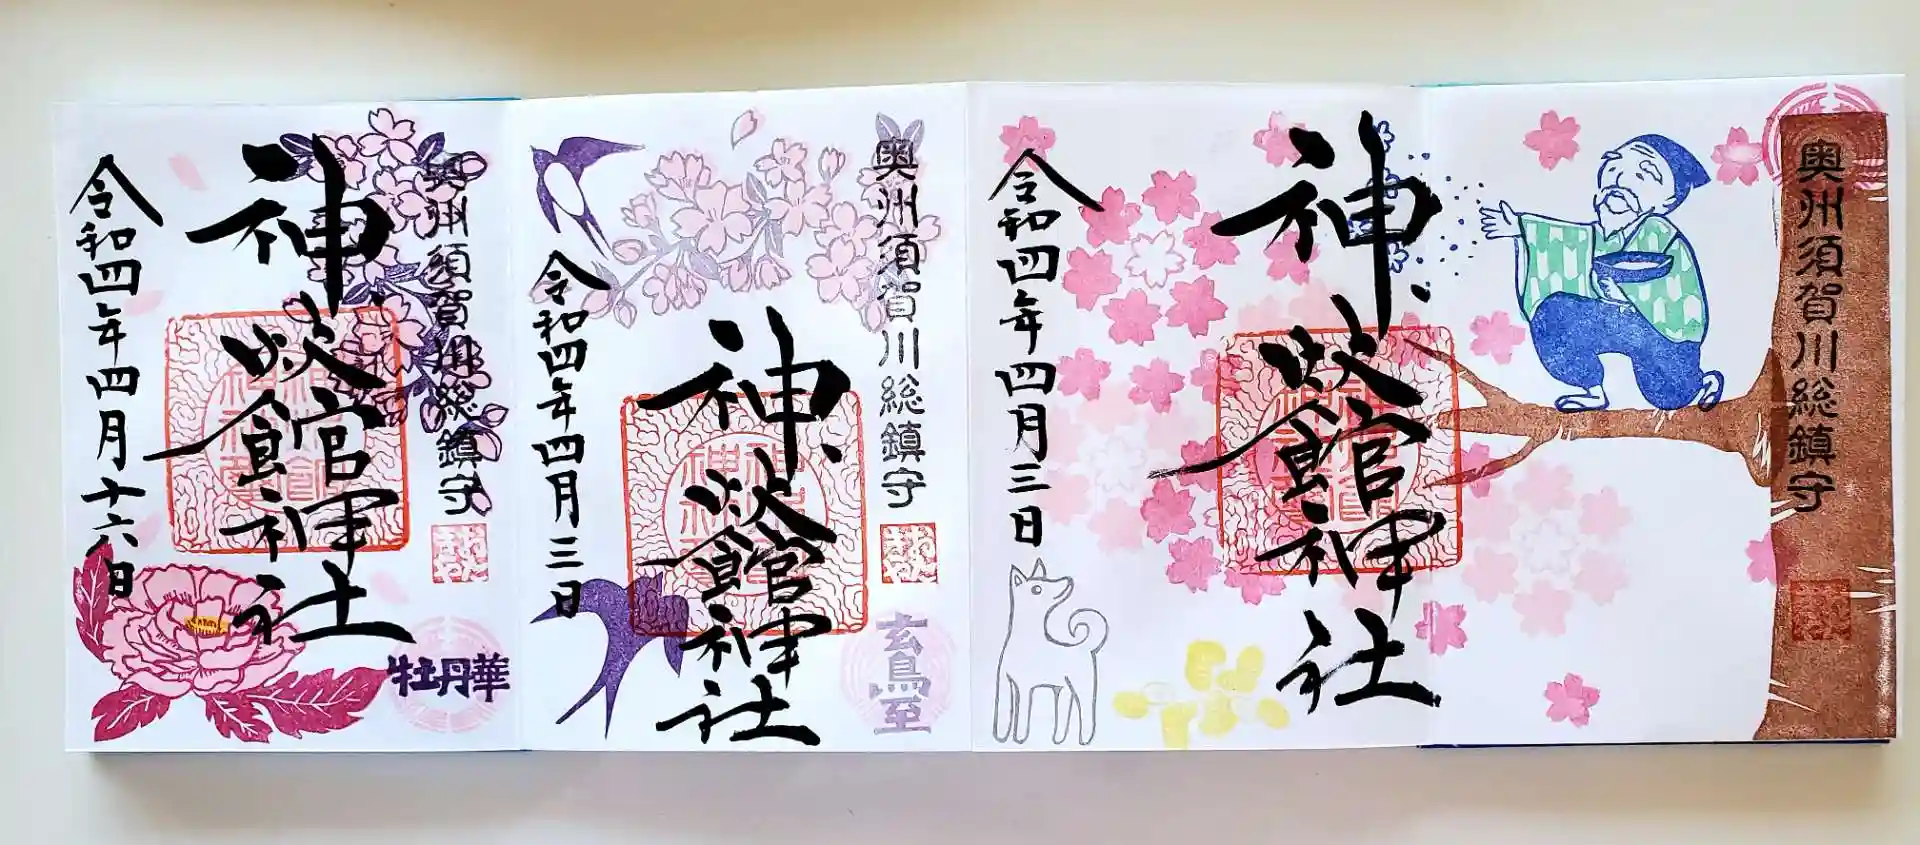 奥州須賀川総鎮守
神炊館神社
令和四年四月三日
奥州須賀川総鎮守
神炊館神社
令和四年四月三日
玄鳥至
奥州須賀川総鎮守
神炊館神社
令和四年四月十六日
牡丹華